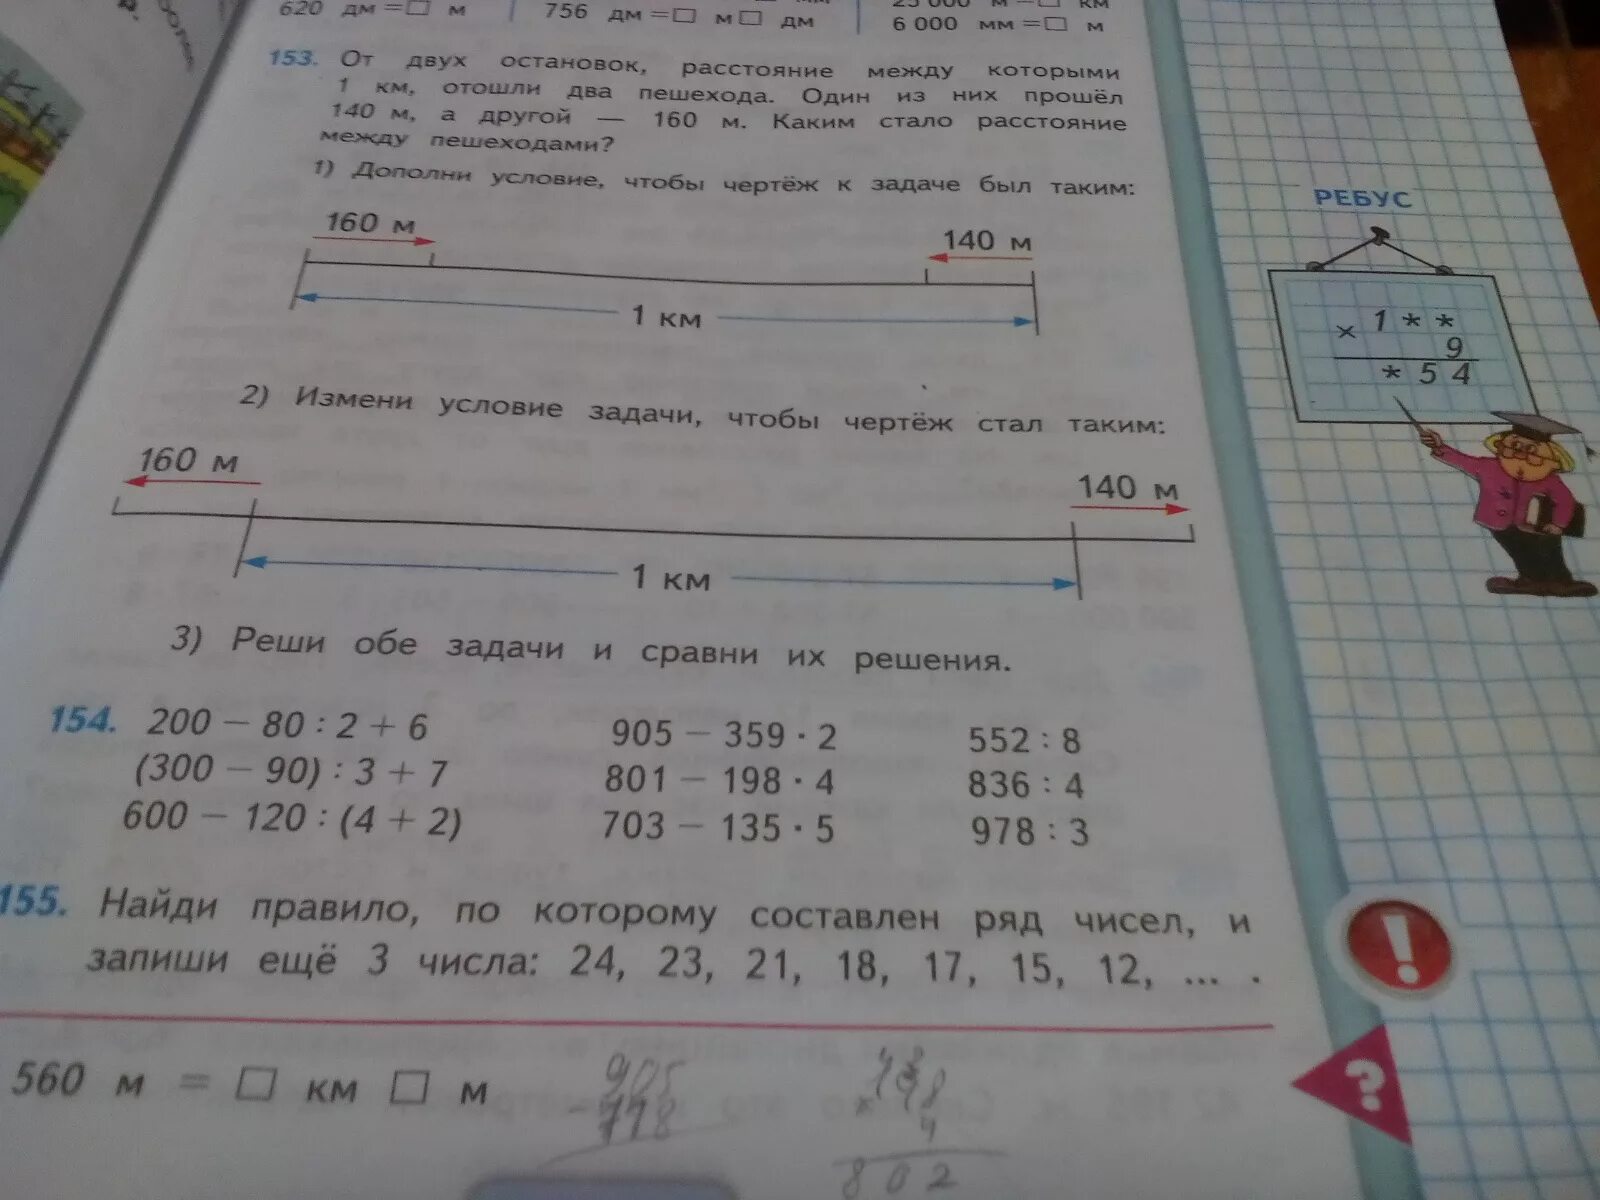 620 дм = □ м
756 дм = □ м □ дм
6 000 мм = □ м
153. От двух остановок, расстояние между которыми
1 км, отошли два пешехода. Один из них прошёл
140 м, а другой — 160 м. Каким стало расстояние
между пешеходами?
1) Дополни условие, чтобы чертёж к задаче был таким:
160 м
140 м
1 км
2) Измени условие задачи, чтобы чертёж стал таким:
160 м
140 м
1 км
3) Реши обе задачи и сравни их решения.
154. 200 − 80 : 2 + 6
905 − 359 · 2
552 : 8
(300 − 90) : 3 + 7
801 − 198 · 4
836 : 4
600 − 120 : (4 + 2)
703 − 135 · 5
978 : 3
155. Найди правило, по которому составлен ряд чисел, и
запиши ещё 3 числа: 24, 23, 21, 18, 17, 15, 12, ... .
560 м = □ км □ м
905
4
802
РЕБУС
× 1 * *
9
* 5 4
!
?